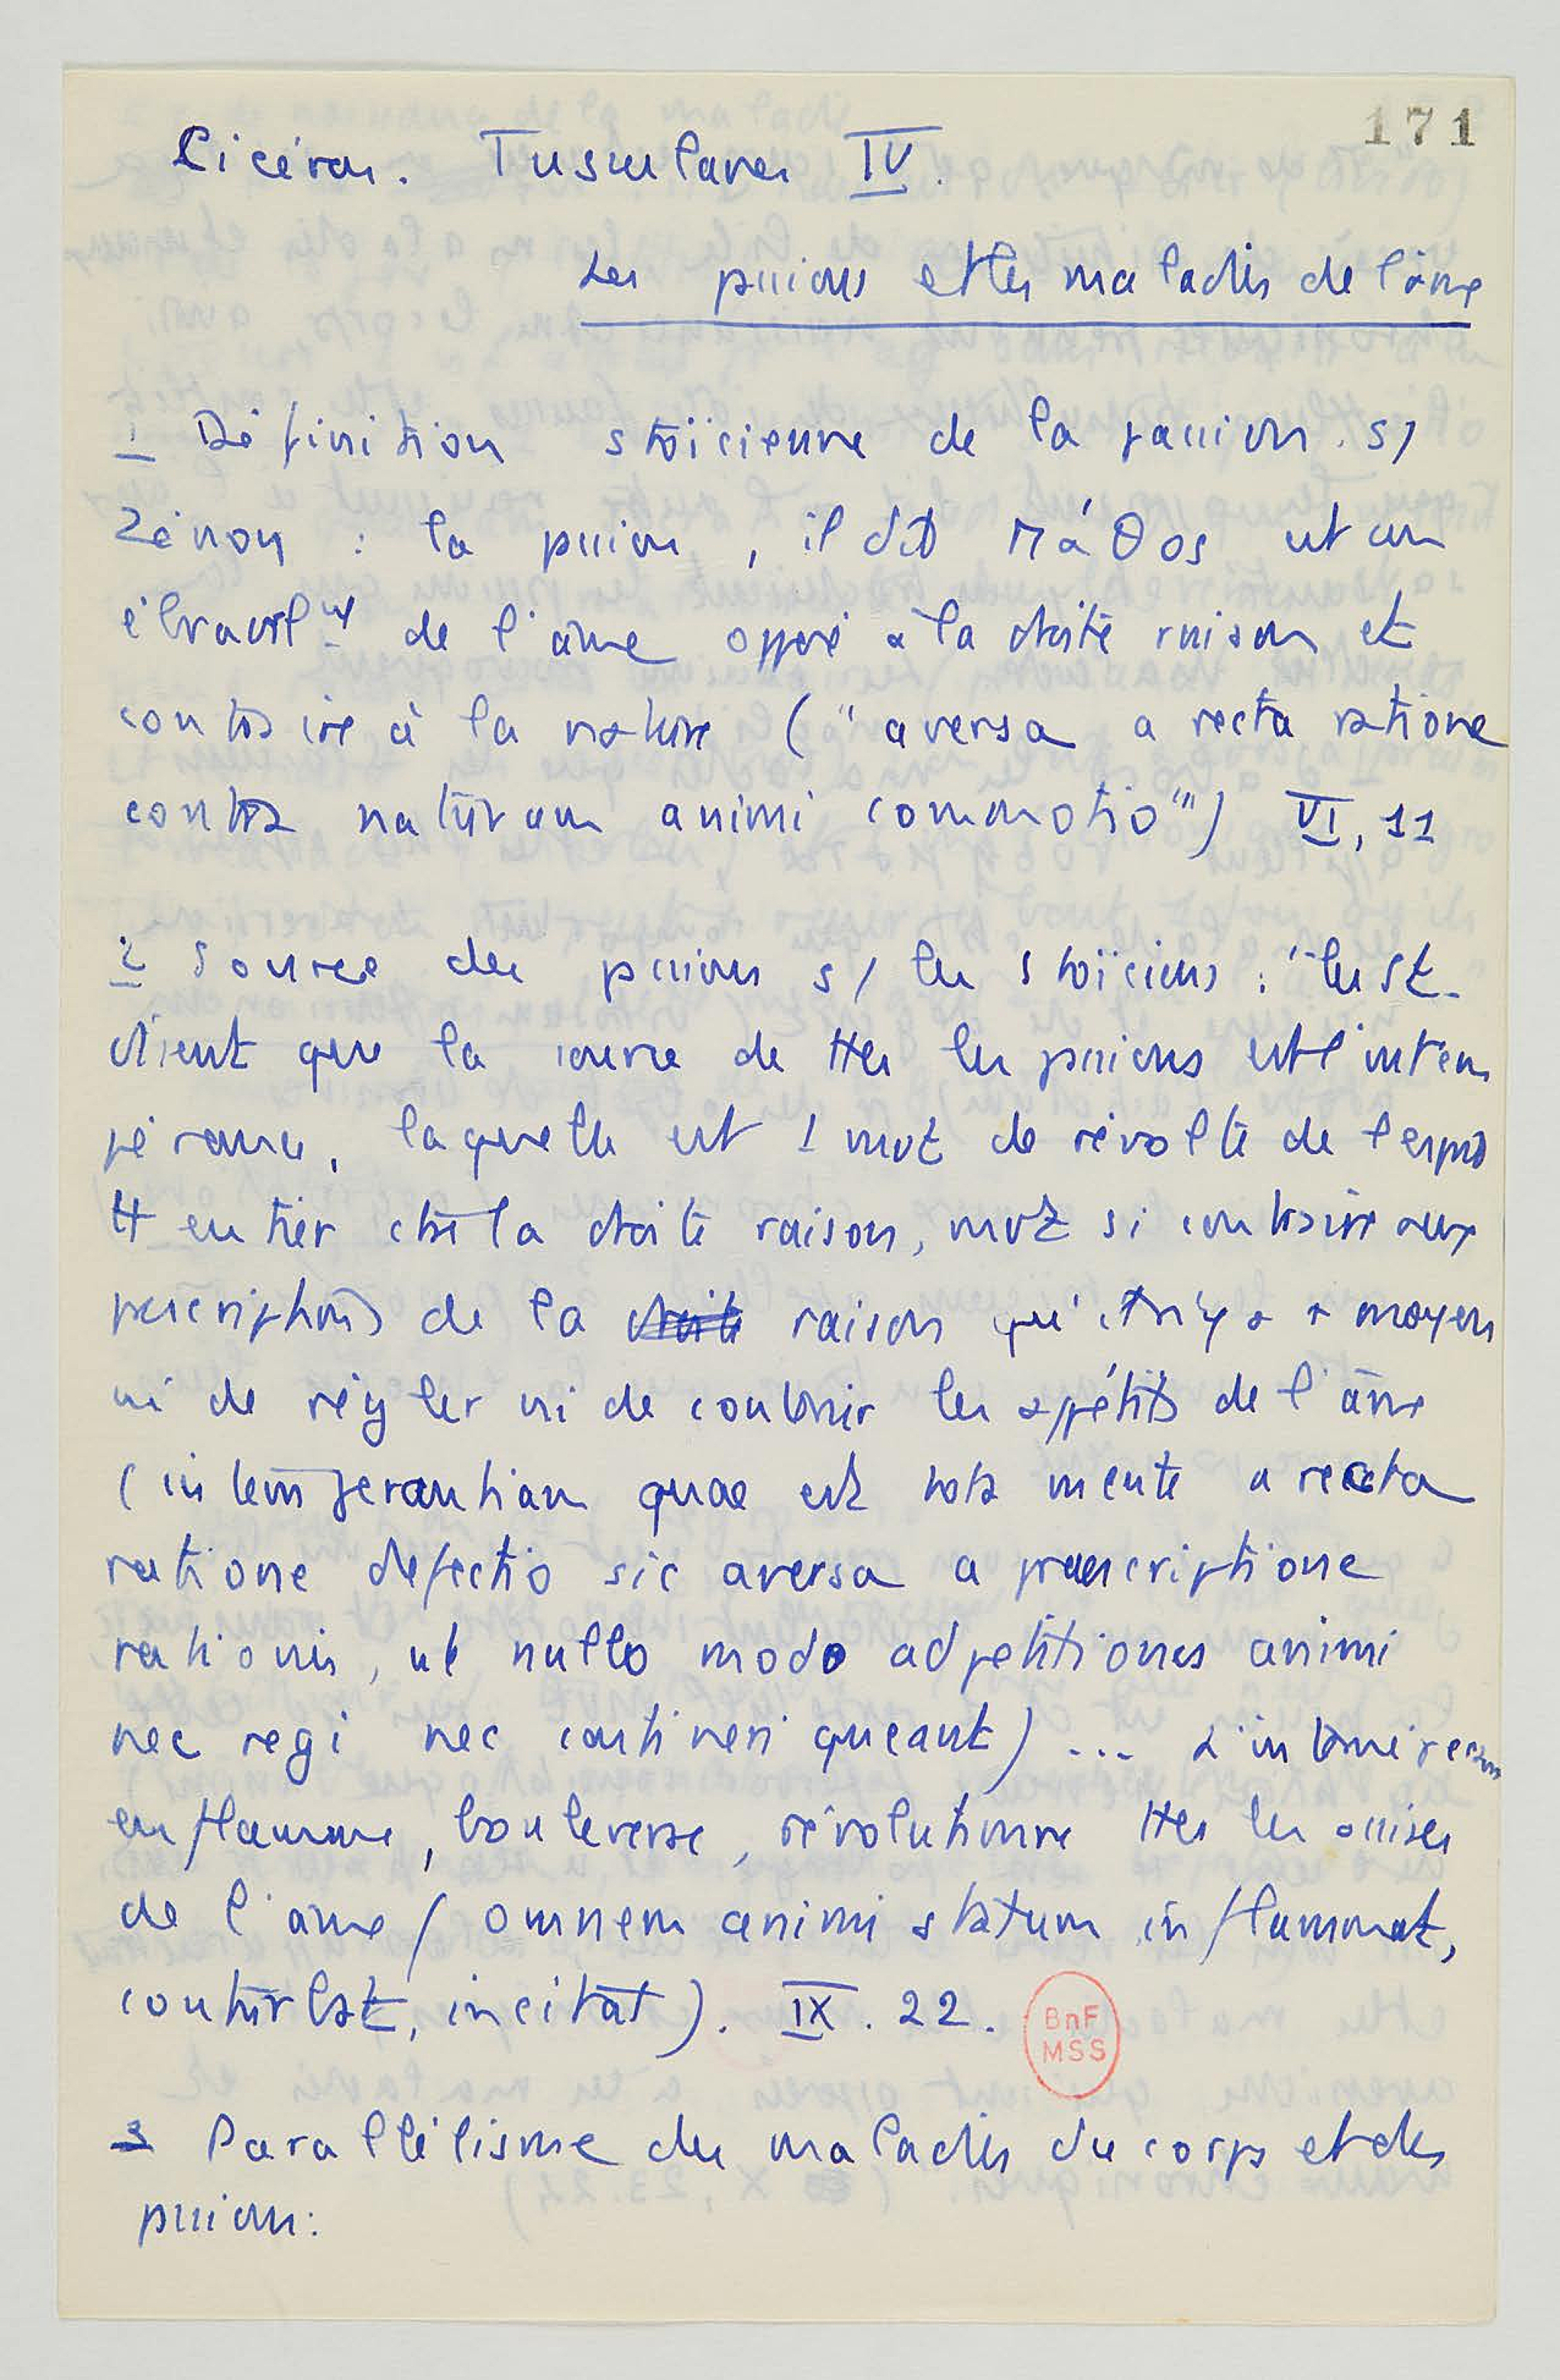 171
Cicéron. Tusculanes IV.
Les passions et les maladies de l'âme
1 Définition stoïcienne de la passion s/
Zénon : la passion, il dit πάθος est un
ébranlt de l'âme opposé à la droite raison et
contraire à la nature ("aversa a recta ratione
contra naturam animi commotio") VI, 11
2 Source des passions s/ les stoïciens : "les st.
disent que la source de ttes les passions est l'intem
pérance, laquelle est 1 mvt de révolte de l'esprit
tt entier ctre la droite raison, mvt si contraire aux
prescriptions de la droite raison qu'il n'y a + moyen
ni de régler ni de contenir les appétits de l'âme
(intemperantiam quae est tota mente a recta
ratione defectio sic aversa a praescriptione
rationis, ut nullo modo adpetitiones animi
nec regi nec contineri queant) ... L'intempérance
enflamme, bouleverse, révolutionne ttes les assises
de l'âme (omnem animi statum inflammat,
conturbat, incitat). IX. 22.
BnF
MSS
3 Parallélisme des maladies du corps et des
passions: